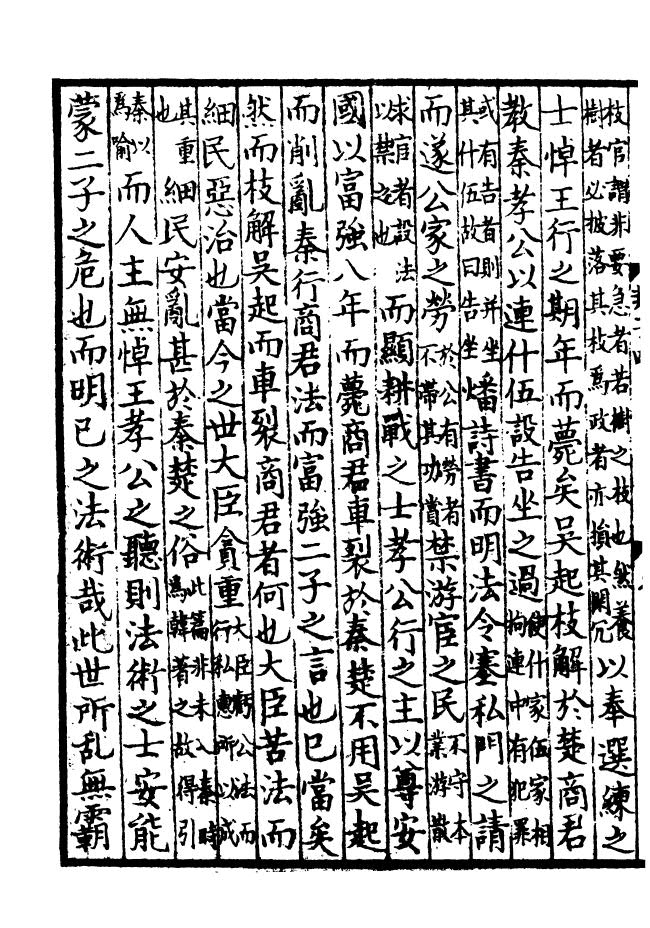 枝官謂非要急者若樹之枝也然養樹者必披落其枝爲政者亦損其閑冗以奉選練之
士悼王行之期年而薨矣吳起枝解於楚商君
教秦孝公以連什伍設告坐之過使什家伍家相拘連中有犯罪
或有告者則并坐其什伍故曰告坐燔詩書而明法令塞私門之請
而遂公家之勞於公有勞者不滯其功賞禁游宦之民不守本業游散
求官者設法以禁之也而顯耕戰之士孝公行之主以尊安
國以富強八年而薨商君車裂於秦楚不用吳起
而削亂秦行商君法而富強二子之言也已當矣
然而枝解吳起而車裂商君者何也大臣苦法而
細民惡治也當今之世大臣貪重大臣虧公法而行私惠所以成
其重也細民安亂甚於秦楚之俗此篇非未入秦時爲韓著之故得引
秦以爲喻而人主無悼王孝公之聽則法術之士安能
蒙二子之危也而明已之法術哉此世所乱無霸